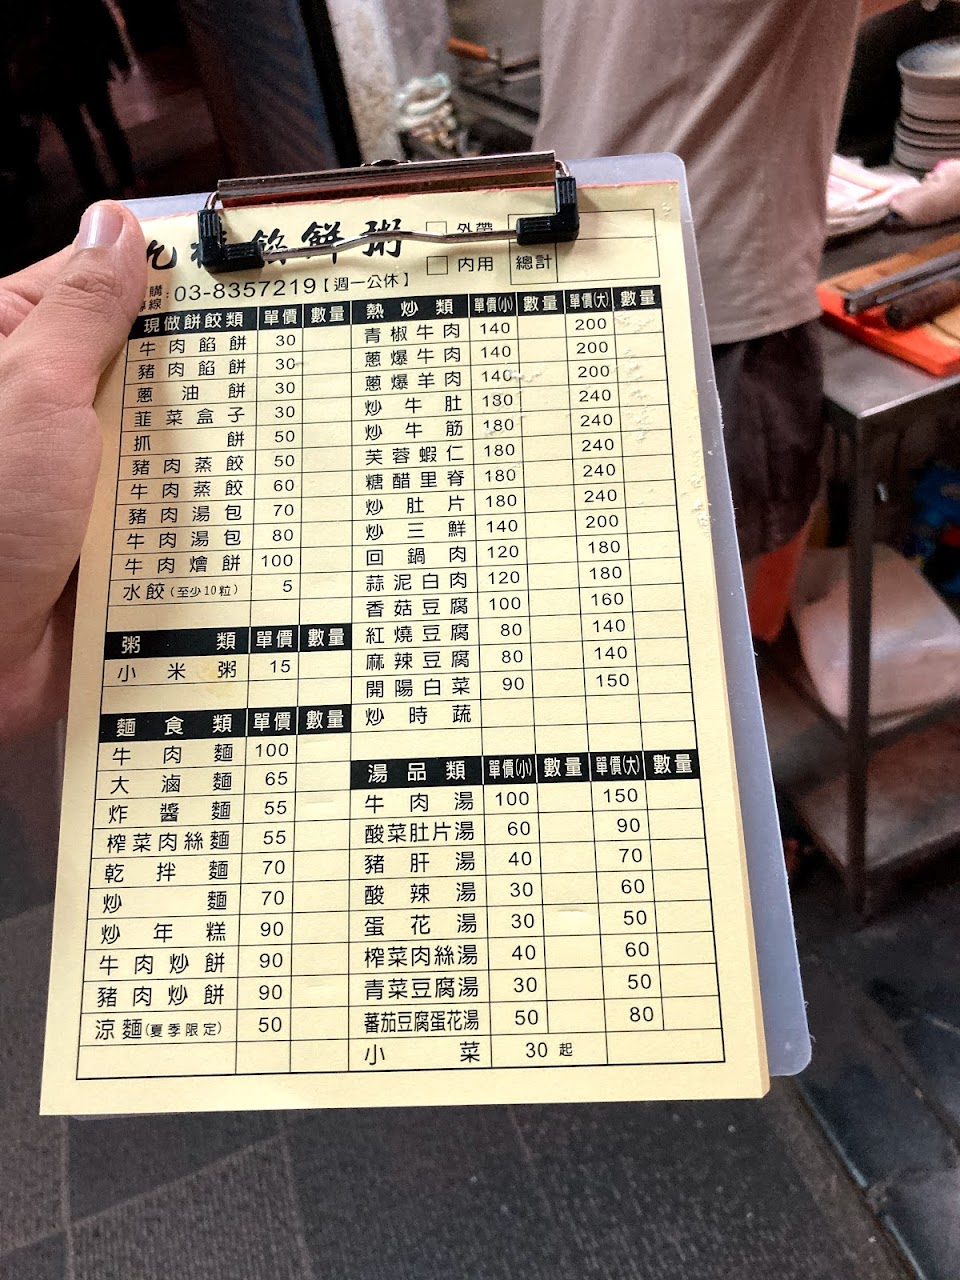 餡餅粥
外帶
內用
總計
購
專線
:
03-8357219【週一公休】
現做餅餃類 單價 數量
牛肉餡餅 30
豬肉餡餅 30
蔥油餅 30
韮菜盒子 30
抓餅 50
豬肉蒸餃 50
牛肉蒸餃 60
豬肉湯包 70
牛肉湯包 80
牛肉燴餅 100
水餃(至少10粒) 5
粥類 單價 數量
小米粥 15
麵食類 單價 數量
牛肉麵 100
大滷麵 65
炸醬麵 55
榨菜肉絲麵 55
乾拌麵 70
炒麵 70
炒年糕 90
牛肉炒餅 90
豬肉炒餅 90
涼麵(夏季限定) 50
熱炒類 單價(小) 數量 單價(大) 數量
青椒牛肉 140 200
蔥爆牛肉 140 200
蔥爆羊肉 140 200
炒牛肚 180 240
炒牛筋 180 240
芙蓉蝦仁 180 240
糖醋里脊 180 240
炒肚片 180 240
炒三鮮 140 200
回鍋肉 120 180
蒜泥白肉 120 180
香菇豆腐 100 160
紅燒豆腐 80 140
麻辣豆腐 80 140
開陽白菜 90 150
炒時蔬
湯品類 單價(小) 數量 單價(大) 數量
牛肉湯 100 150
酸菜肚片湯 60 90
豬肝湯 40 70
酸辣湯 30 60
蛋花湯 30 50
榨菜肉絲湯 40 60
青菜豆腐湯 30 50
蕃茄豆腐蛋花湯 50 80
小菜 30 起